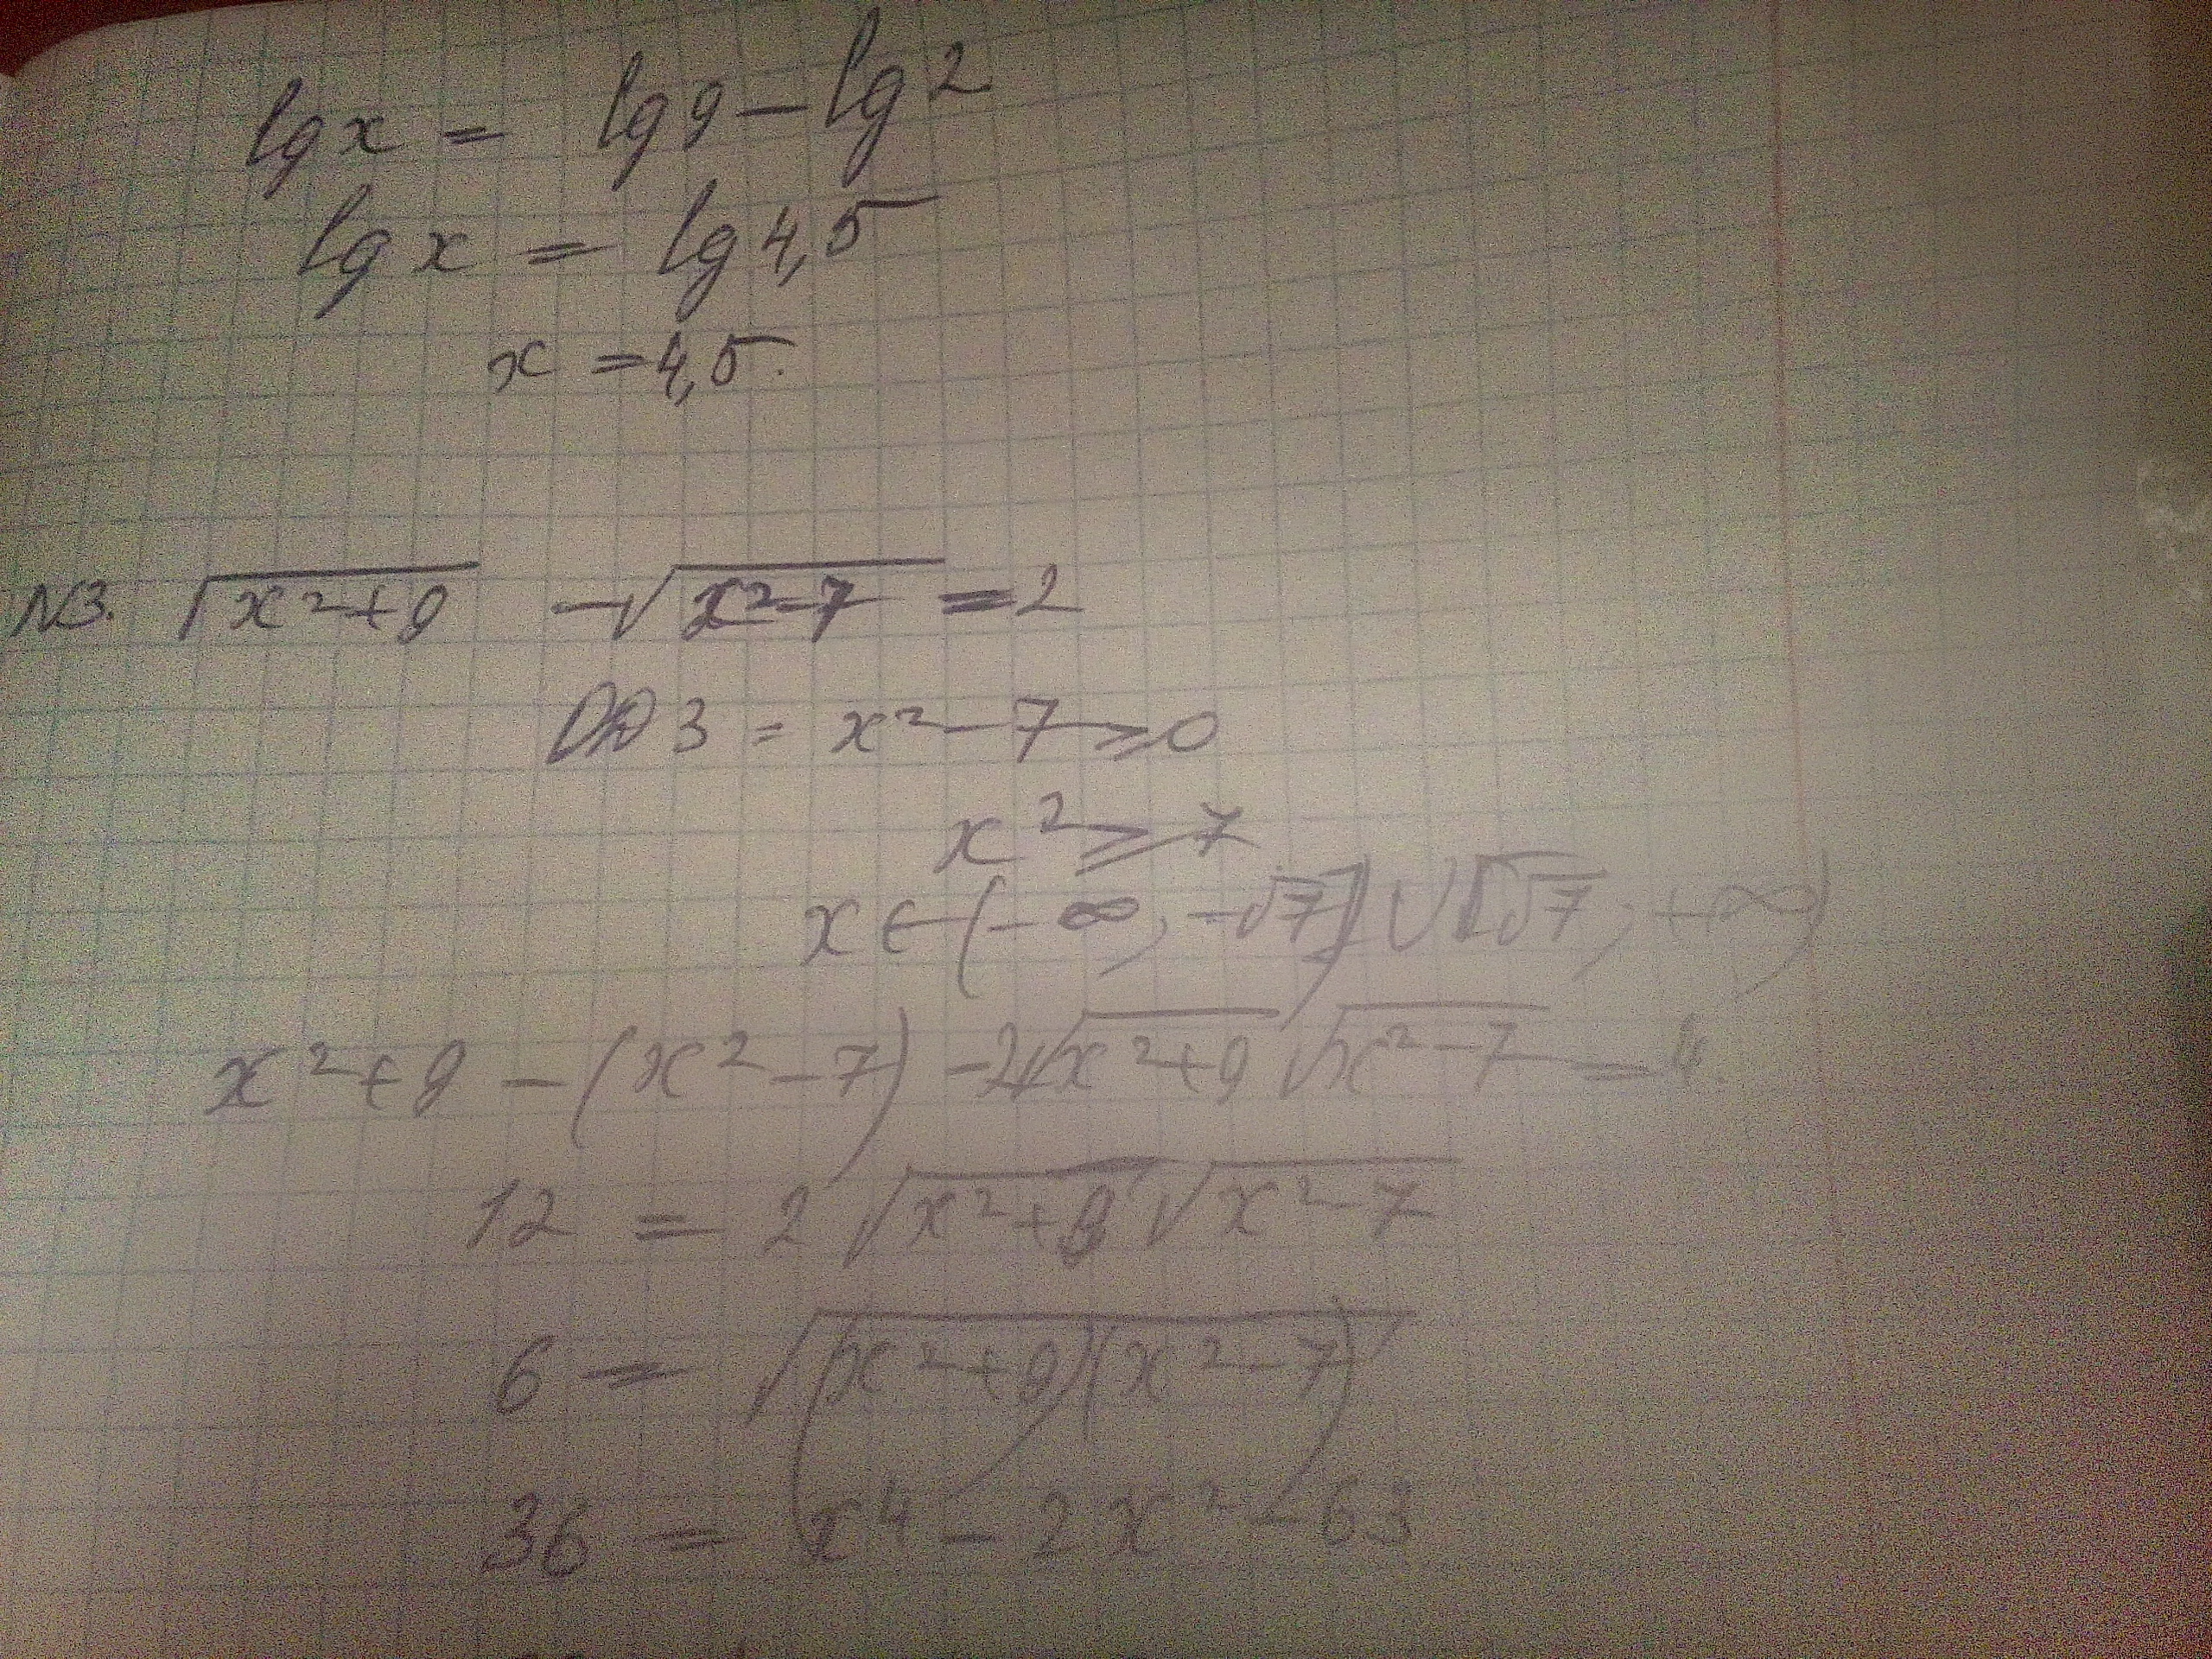 lg x = lg 9 - lg 2
lg x = lg 4,5
x = 4,5.
N3. √(x²+9) - √(x²-7) = 2
ОДЗ = x² - 7 ≥ 0
x² ≥ 7
x ∈ (-∞; -√7] ∪ [√7; +∞)
x²+9 - (x²-7) - 2√(x²+9) √(x²-7) = 4.
12 = 2 √(x²+9) √(x²-7)
6 = √((x²+9)(x²-7))
36 = x⁴ - 2x² - 63